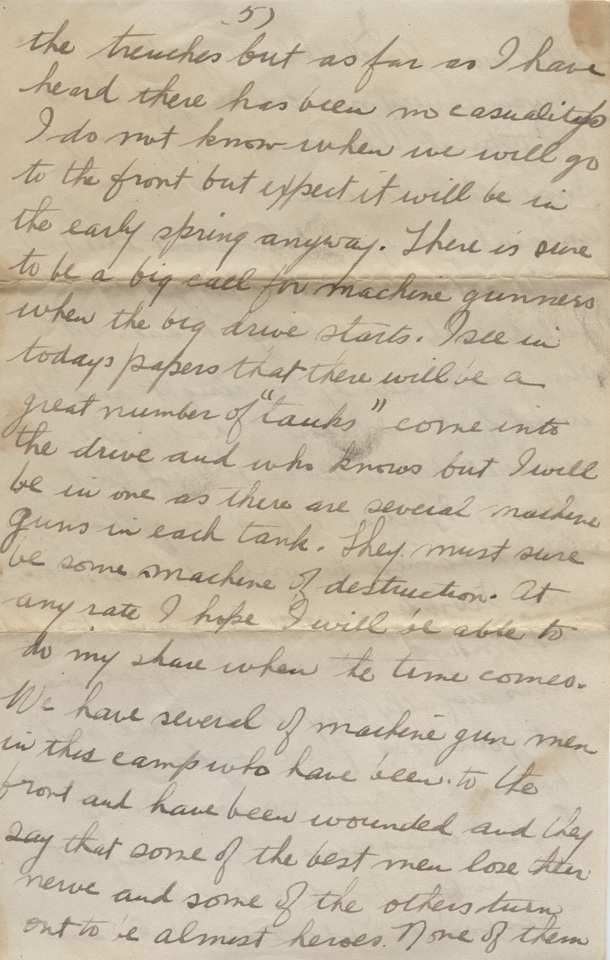 5)
the trenches but as far as I have
heard there has been no casualitys
I do not know when we will go
to the front but expect it will be in
the early spring anyway. There is sure
to be a big call for machine gunners
when the big drive starts. I see in
todays papers that there will be a
great number of "tanks" come into
the drive and who knows but I will
be in one as there are several machine
guns in each tank. They must sure
be some machine of destruction. At
any rate I hope I will be able to
do my share when the time comes.
We have several of machine gun men
in this camp who have been to the
front and have been wounded and they
say that some of the best men lose their
nerve and some of the others turn
out to be almost heroes. None of them